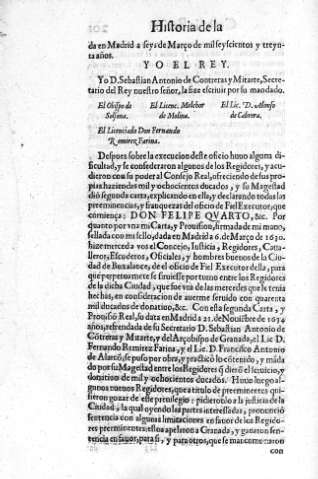 Historia de la
da en Madrid a seys de Março de mil seyscientos y treyn-
ta años.
YO EL REY.
Yo D. Sebastian Antonio de Contreras y Mitarte, Secre-
tario del Rey nuestro señor, la fize escriuir por su mandado.
El Obispo de Solsona.
El Licenc. Melchor de Molina.
El Lic. D. Alonso de Cabrera.
El Licenciado Don Fernando Ramirez Farina.
Despues sobre la execucion deste oficio huuo alguna di-
ficultad, y se confederaron algunos de los Regidores, y acu-
dieron con su poder al Consejo Real, ofreciendo de sus pro-
pias haziendas mil y ochocientos ducados, y su Magestad
dió segunda carta, explicando en ella, y declarando todas las
preeminencias, y franquezas del oficio de Fiel Executor, que
comiença: DON FELIPE QVARTO, &c. Por
quanto por vna mi Carta, y Prouision, firmada de mi mano,
sellada con mi sello, dada en Madrid a 6. de Março de 1630.
hize merced a vos el Concejo, Iusticia, Regidores, Caua-
lleros, Escuderos, Oficiales, y hombres buenos de la Ciu-
dad de de el oficio de Fiel Executor della, para
que perpetuamente se siruiesse por turno entre los Regidores
de la dicha Ciudad, que fue vna de las mercedes que le tenia
hechas, en consideracion de auerme seruido con quarenta
mil ducados de donatiuo, &c. Con esta segunda Carta, y
Prouisió Real, su data en Madrid a 21. de Nouiēbre de 1634
años, refrendada de su Secretario D. Sebastian Antonio de
Cōtreras y Mitarte, y del Arçobispo de Granada, el Lic. D.
Fernando Ramirez Farina, y el Lic. D. Francisco Antonio
de Alarcō, se puso por obra, y practicó lo cōtenido, y māda
do por su Magestad entre los Regidores q̃ dierō el seruicio, y
donatiuo de mil y ochocientos ducados. Huuo luego al-
gunos nueuos Regidores, que a titulo de preeminentes qui-
sieron gozar de esse preuilegio: pidieronlo a la justicia de la
Ciudad, la qual oyendo las partes interessadas, pronunció
sentencia con algunas limitaciones en fauor de los Regido
res preeminentes: estos apelaron a Granada, y ganaron sen-
tencia en fauor, para si, y para otros, que se mas
con